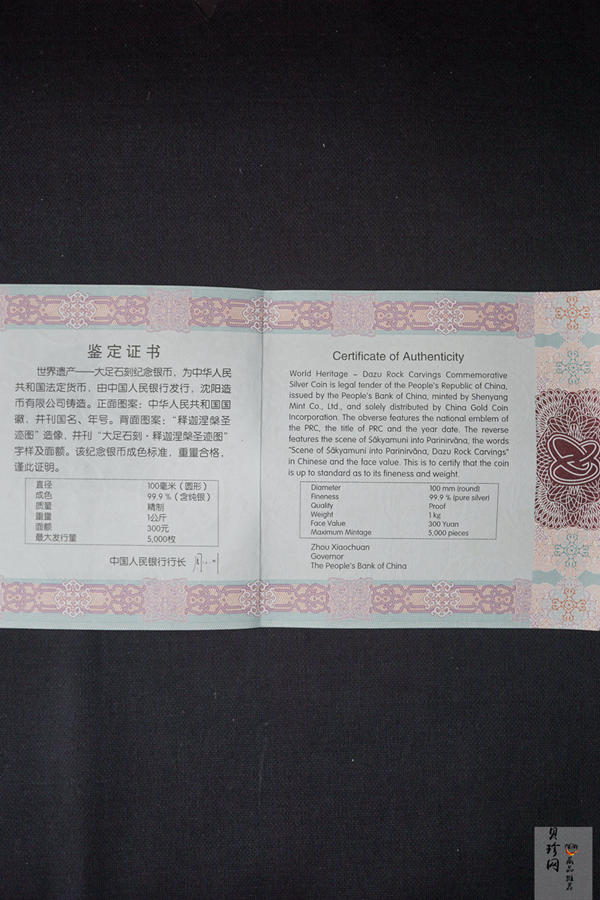 鉴定证书
世界遗产——大足石刻纪念银币，为中华人民
共和国法定货币，由中国人民银行发行，沈阳造
币有限公司铸造。正面图案：中华人民共和国国
徽，并刊国名、年号。背面图案：“释迦涅槃圣
迹图”造像，并刊“大足石刻·释迦涅槃圣迹图”
字样及面额。该纪念银币成色标准，重量合格，
谨此证明。
直径 100毫米（圆形）
成色 99.9 %（含纯银）
质量 精制
重量 1公斤
面额 300元
最大发行量 5,000枚
中国人民银行行长
Certificate of Authenticity
World Heritage – Dazu Rock Carvings Commemorative
Silver Coin is legal tender of the People's Republic of China,
issued by the People's Bank of China, minted by Shenyang
Mint Co., Ltd., and solely distributed by China Gold Coin
Incorporation. The obverse features the national emblem of
the PRC, the title of PRC and the year date. The reverse
features the scene of Sākyamuni into Parinirvāna, the words
"Scene of Sākyamuni into Parinirvāna, Dazu Rock Carvings"
in Chinese and the face value. This is to certify that the coin
is up to standard as to its fineness and weight.
Diameter 100 mm (round)
Fineness 99.9 % (pure silver)
Quality Proof
Weight 1 kg
Face Value 300 Yuan
Maximum Mintage 5,000 pieces
Zhou Xiaochuan
Governor
The People's Bank of China
贝珍网